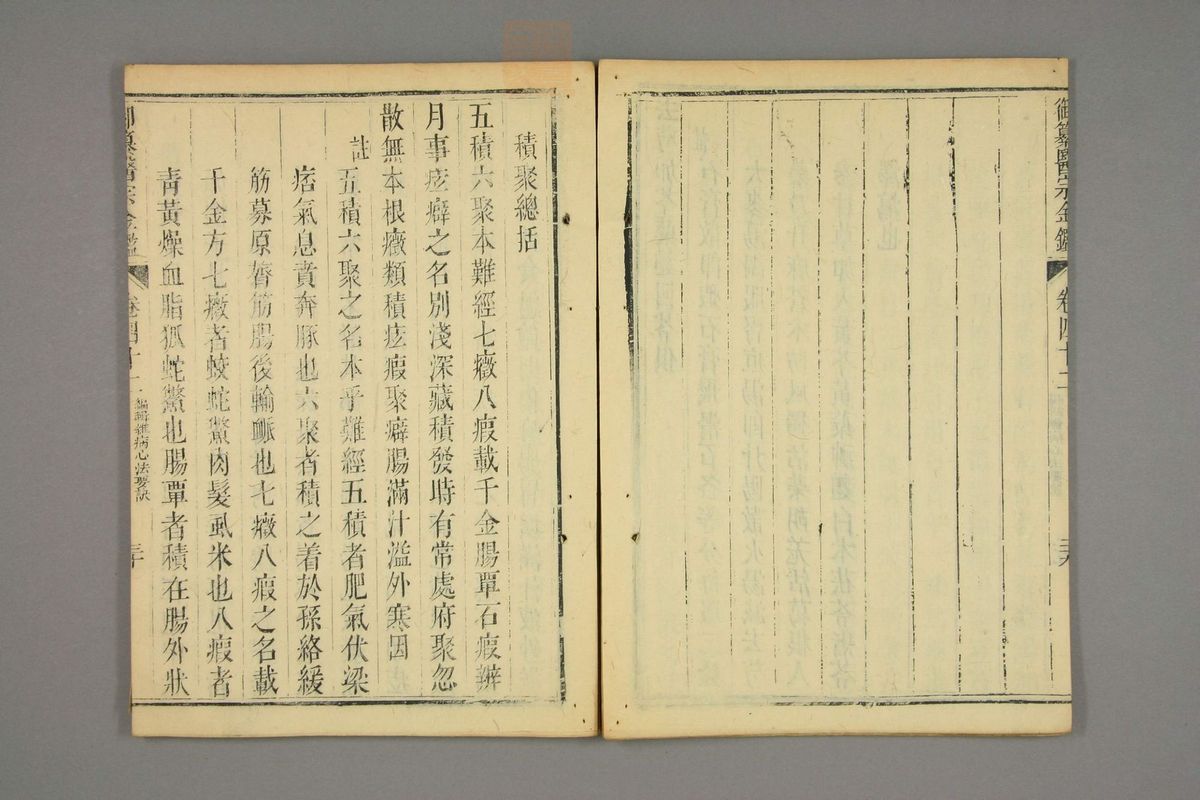 御纂醫宗金鑑
卷四十二
三九
積聚總括
五積六聚本難經七癥八瘕載千金腸覃石瘕辨
月事痃癖之名別淺深藏積發時有常處府聚忽
散無本根癥類積痃瘕聚癖腸滿汁溢外寒因
註
五積六聚之名本乎難經五積者肥氣伏梁
痞氣息賁奔豚也六聚者積之着於孫絡緩
筋募原膂筋腸後輸脈也七癥八瘕之名載
千金方七癥者蛟蛇鱉肉髮虱米也八瘕者
青黃燥血脂狐蛇鱉也腸覃者積在腸外狀
御纂醫宗金鑑
卷四十二
編輯雜病心法要訣
三十